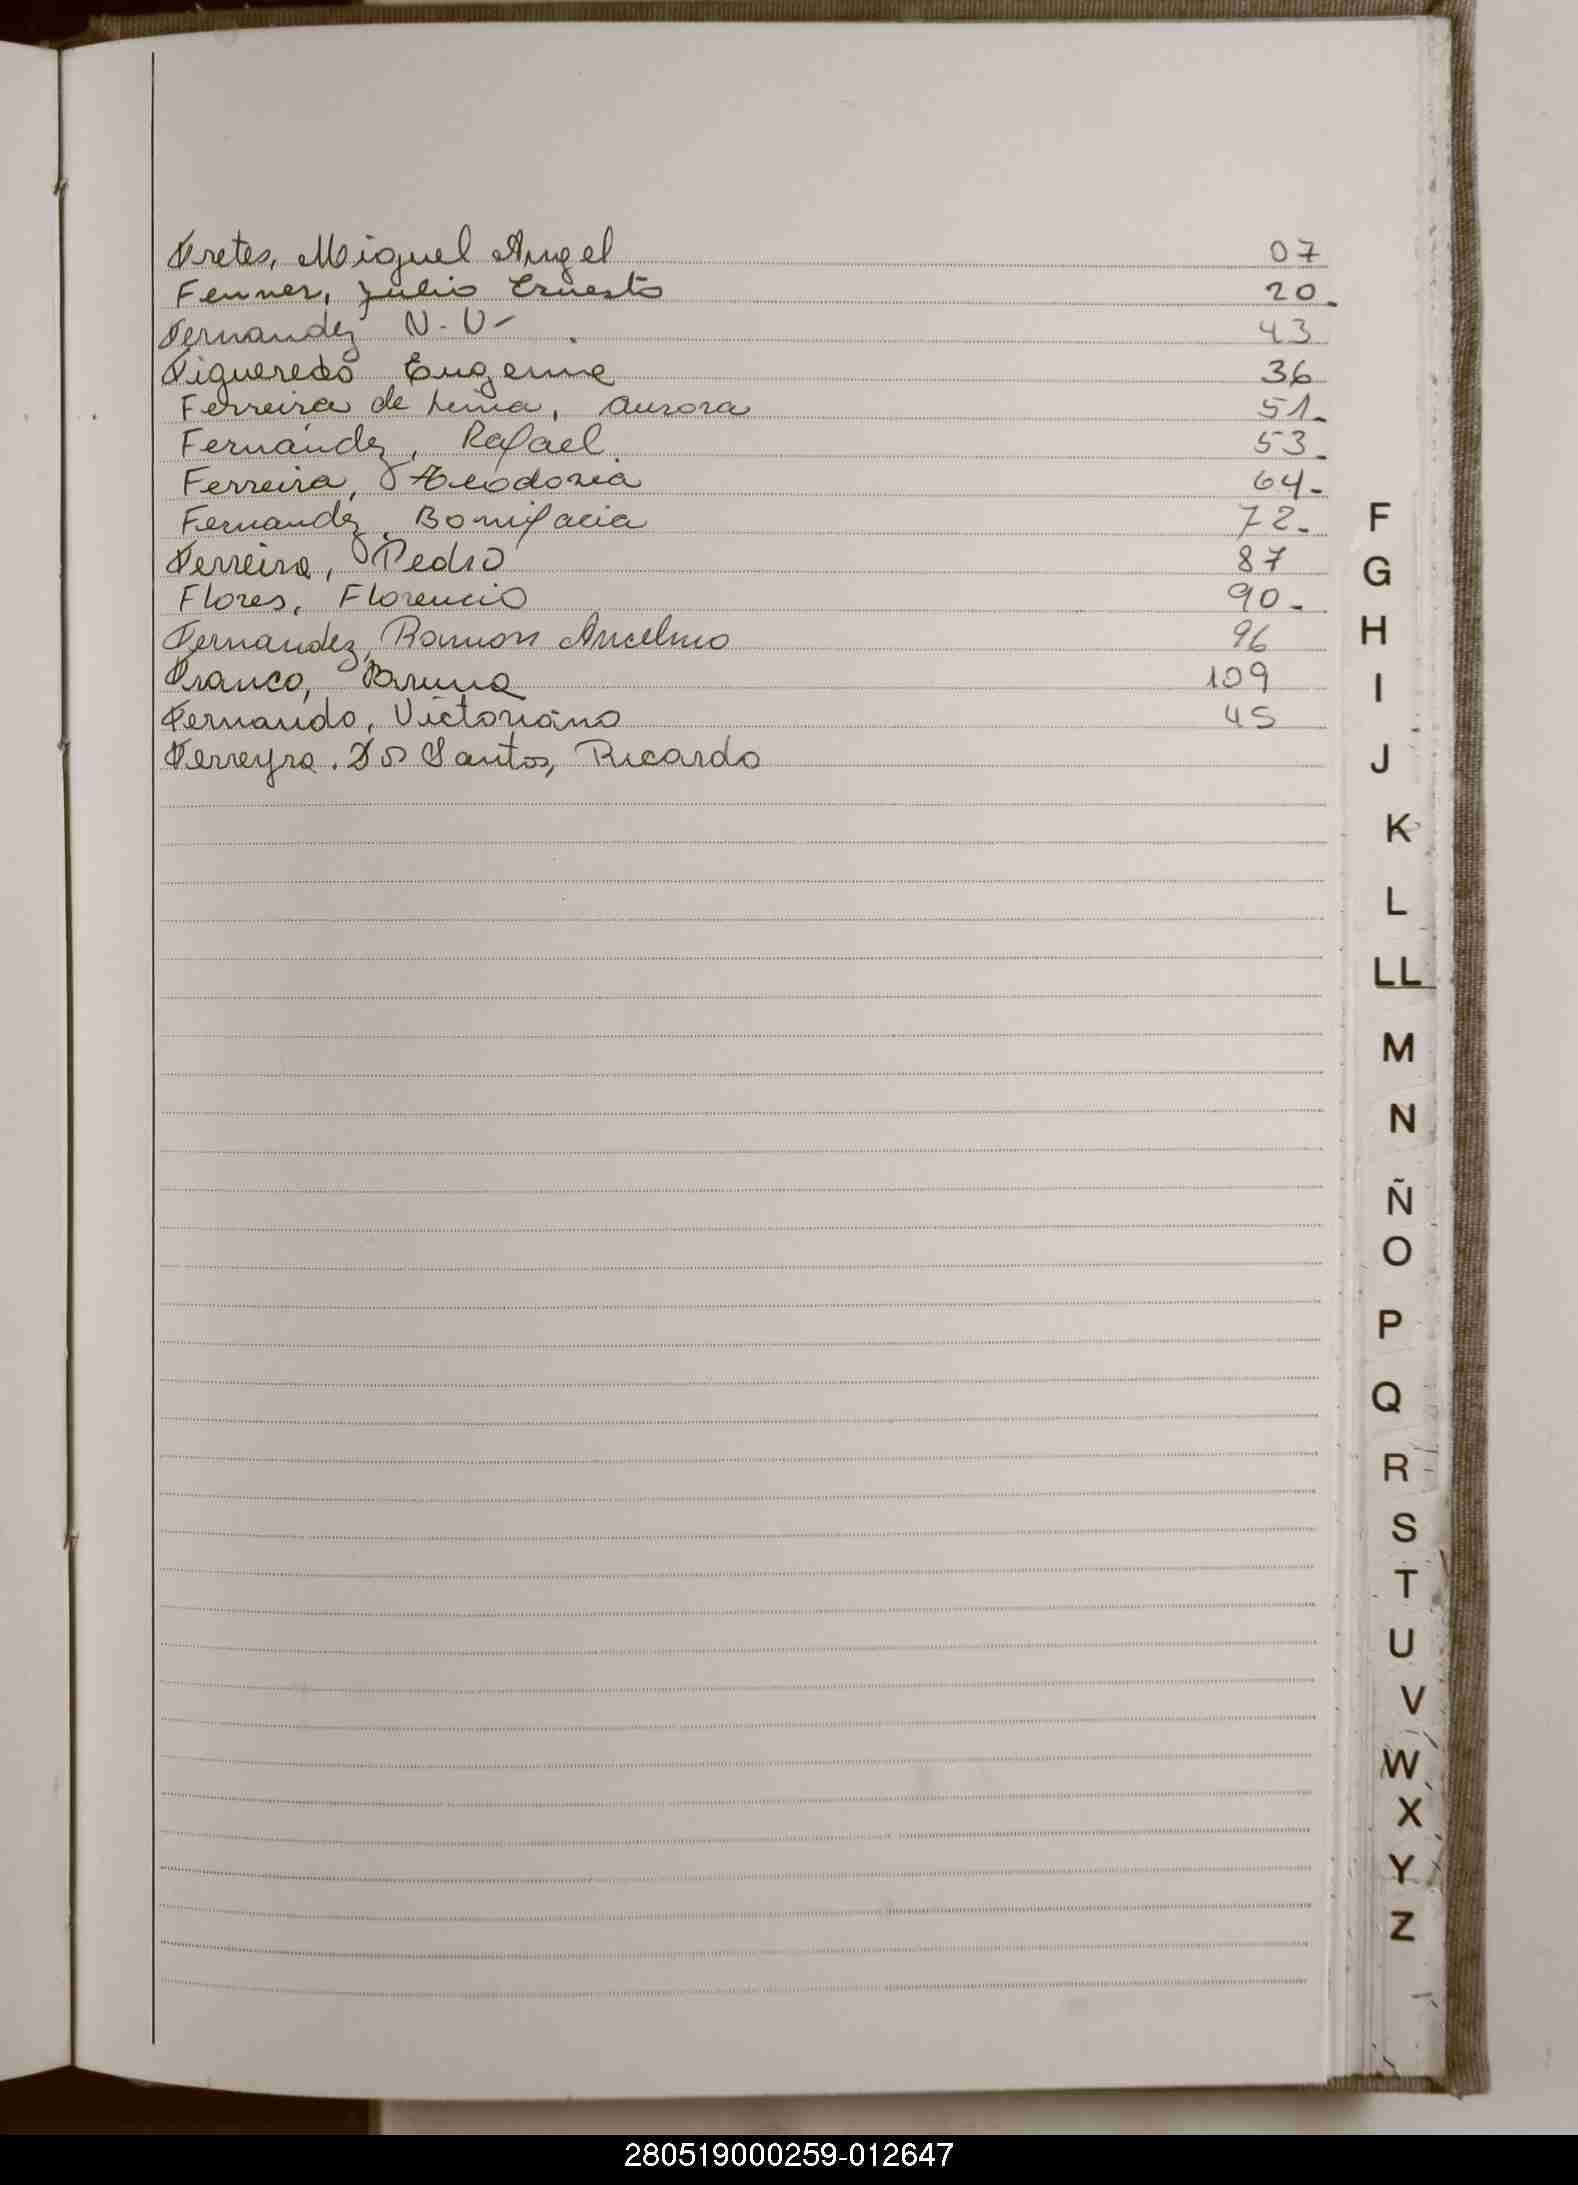 Fretes, Miguel Angel 07
Fenner, Julio Ernesto 20.
Fernandez N.U- 43
Figueredo Eugenia 36
Ferreira de Lima, Aurora 51.
Fernández, Rafael 53.
Ferreira, Teodoria 64.
Fernandez, Bonifacia 72.
Ferreira, Pedro 87
Flores, Florencio 90.
Fernandez, Ramon Ancelmo 96
Franco, Bruna 109
Fernando, Victoriano 45
Ferreyra. Dos Santos, Ricardo
F
G
H
I
J
K
L
LL
M
N
Ñ
O
P
Q
R
S
T
U
V
W
X
Y
Z
280519000259-012647